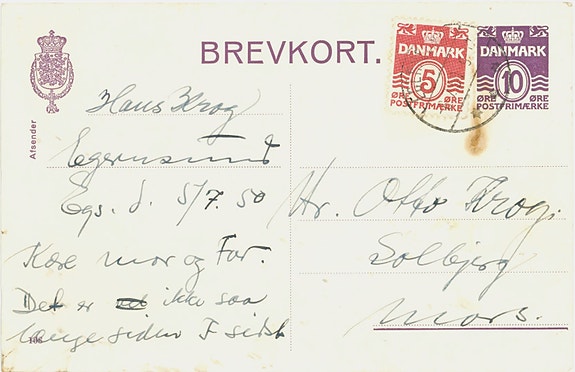 BREVKORT.
DANMARK
5
ØRE ØRE
POSTFRIMÆRKE
DANMARK
10
ØRE ØRE
POSTFRIMÆRKE
Afsender
Hans Krog
Egernsund
Egs. d. 5/7. 50
Kære mor og Far.
Det er ikke saa
længe siden I sidst
106
Hr. Otto Krog.
Solbjerg
Mors.